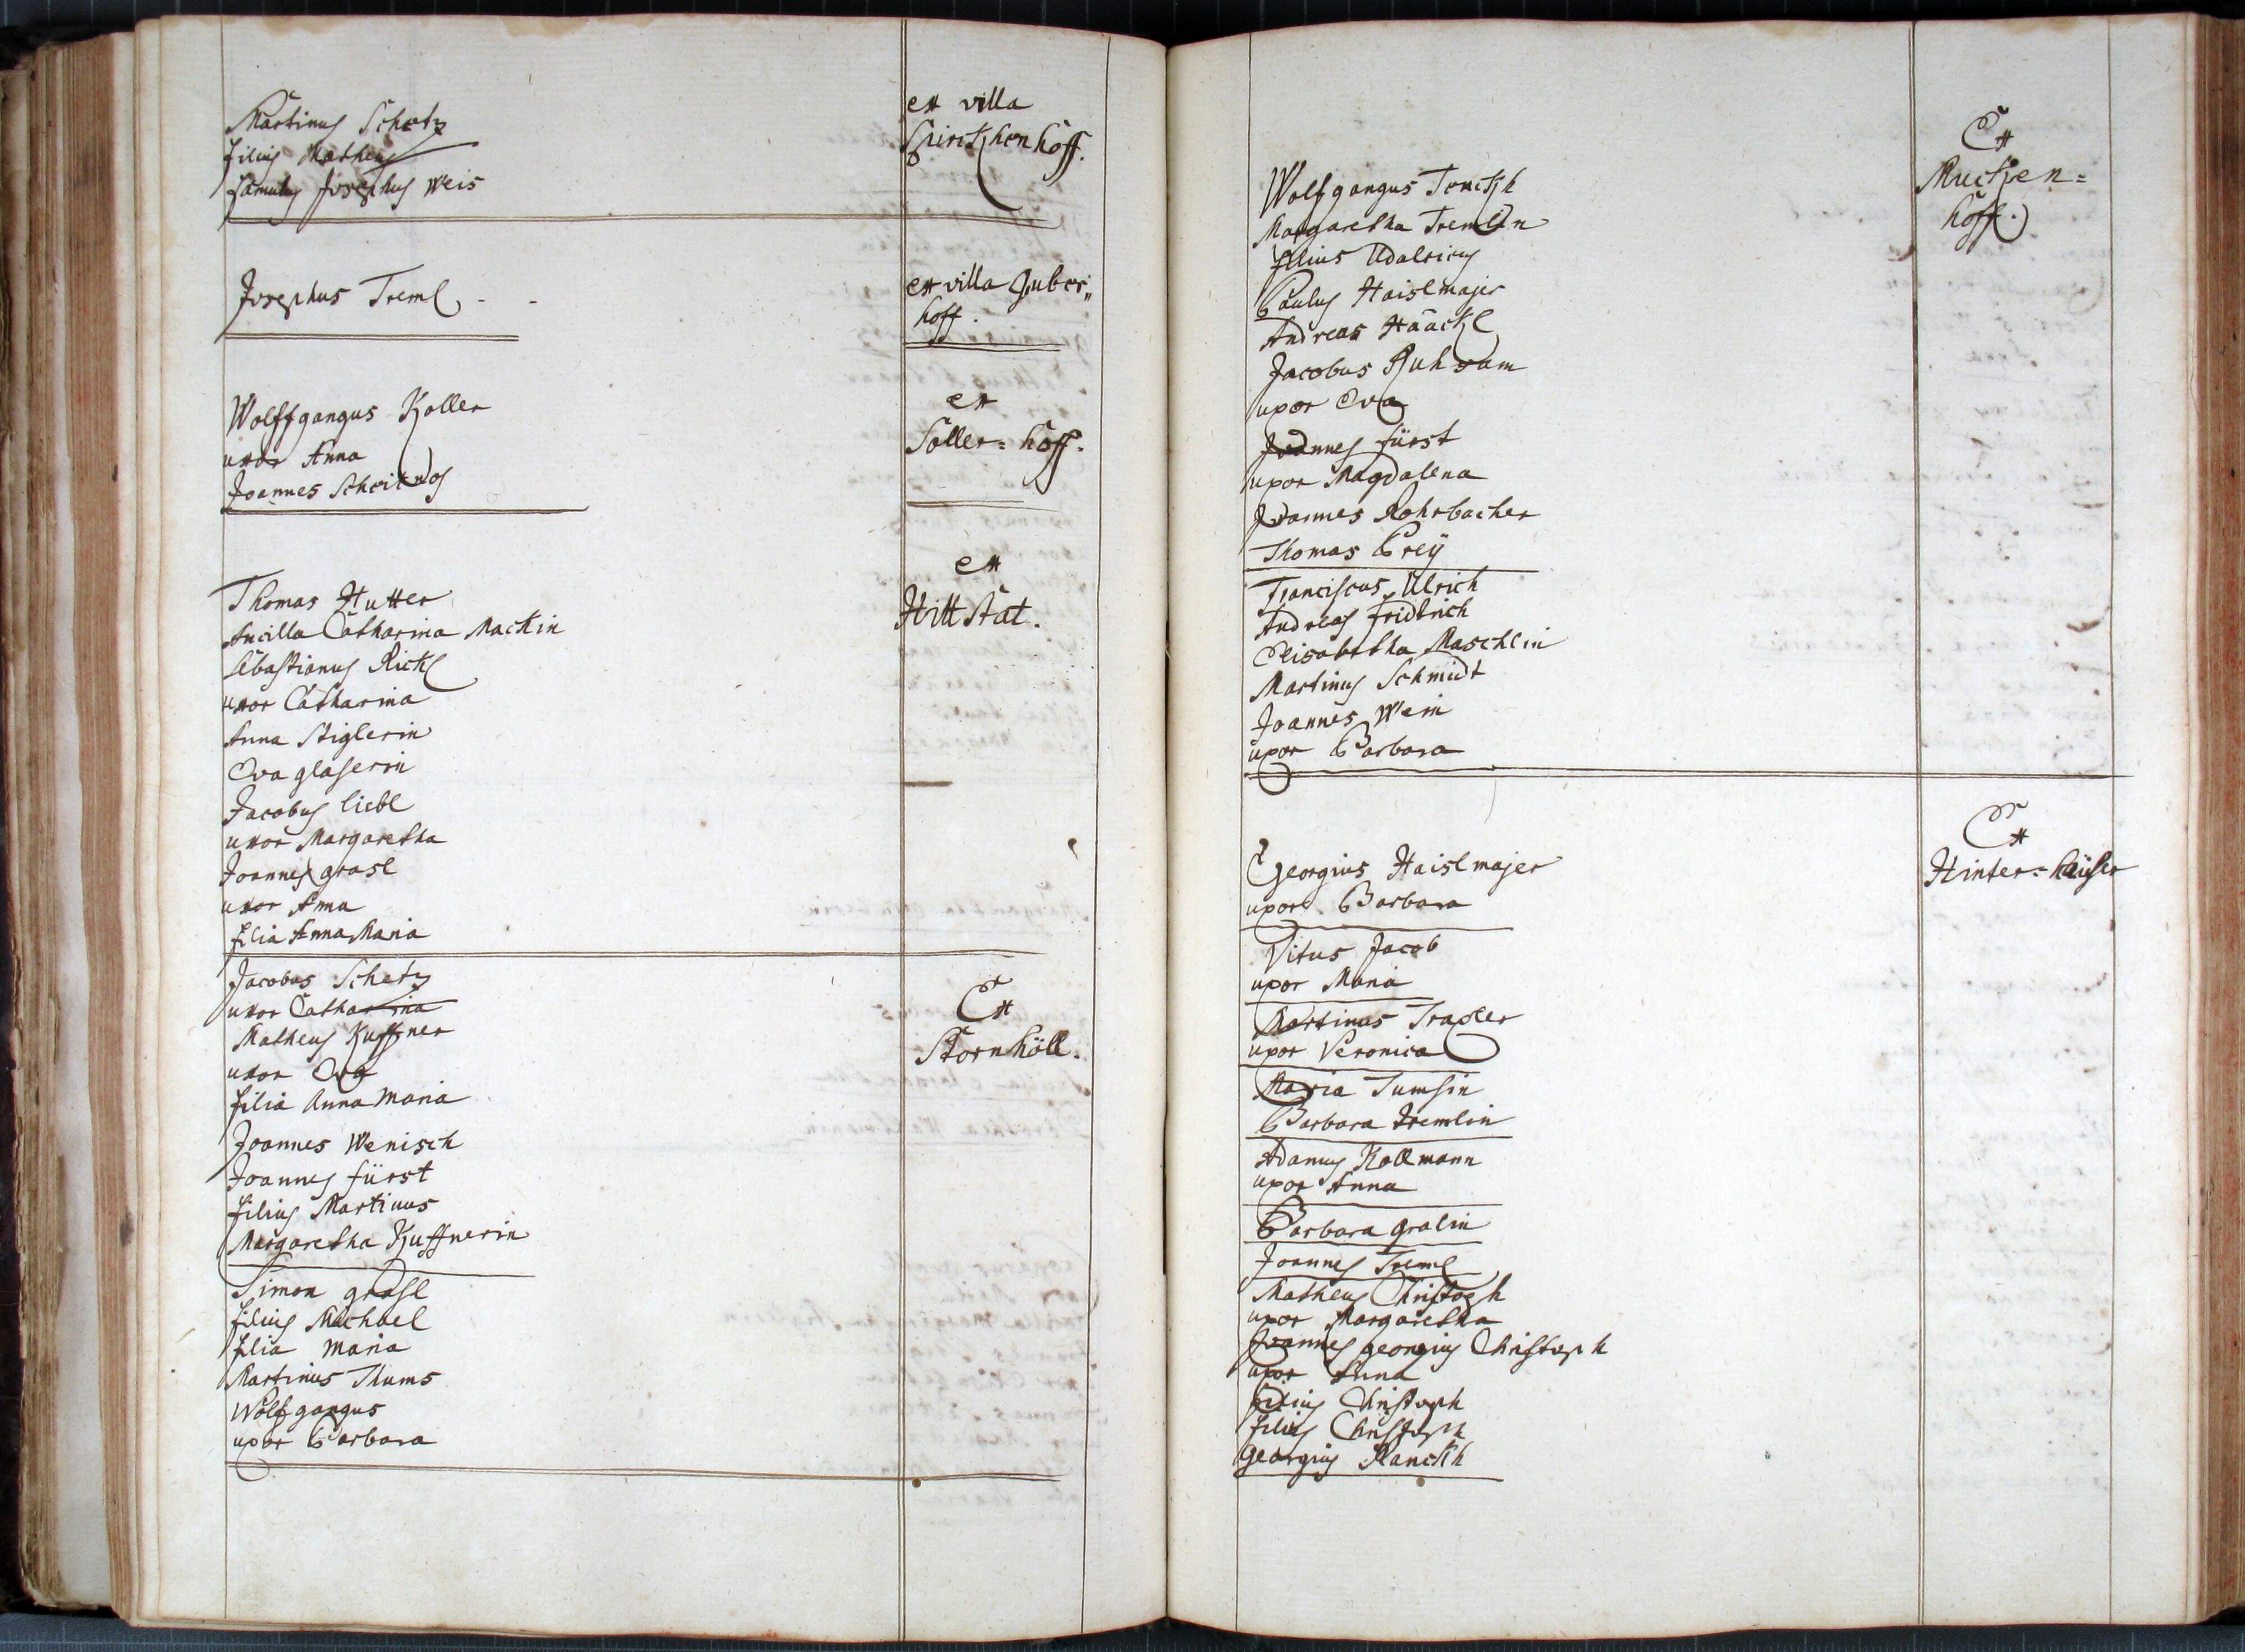 Martinus Schetz
filius Matheus
famulus Josephus Weis
ex villa
Spiritzhenhoff.
Josephus Treml - -
ex villa Huber„
hoff.
Wolffgangus Koller
uxor Anna
Joannes
ex
Soller=hoff.
Thomas Hutter
Ancilla Catharina Mackin
Sebastianus Rickl
uxor Catharina
Anna Stiglerin
Eva glaserin
Jacobus liebl
uxor Margaretha
Joannes grasl
uxor Anna
filia Anna Maria
ex
Hittstat.
Jacobus Schetz
uxor Catharina
Matheus Kuffner
uxor Eva
filia Anna Maria
Joannes Wenisch
Joannes fürst
filius Martinus
Margaretha Kuffnerin
Simon grasl
filius Michael
filia Maria
Martinus Thums
Wolfgangus
uxor Barbara
Ex
Stornhöll.
Wolfgangus
Margaretha Tremlin
filius Udalricus
Paulus Haislmajer
Andreas Haackl
Jacobus Ruhsam
uxor Eva
Joannes fürst
uxor Magdalena
Joannes Rohrbacher
Thomas Preÿ
Franciscus Ulrich
Andreas fridrich
Elisabetha Maschlin
Martinus Schmidt
Joannes Wein
uxor Barbara
Ex
Mutzen=
hoff.
Georgius Haislmajer
uxor Barbara
Vitus Jacob
uxor Maria
Martinus Traxler
uxor Veronica
Maria Tumsin
Barbara Tremlin
Adamus Kollmann
uxor Anna
Barbara gralin
Joannes Treml
Matheus Christoph
uxor Margaretha
Joannes georgius Christoph
uxor Anna
filius Christoph
filius Christoph
georgius Planckh
Ex
Hinter=heüser